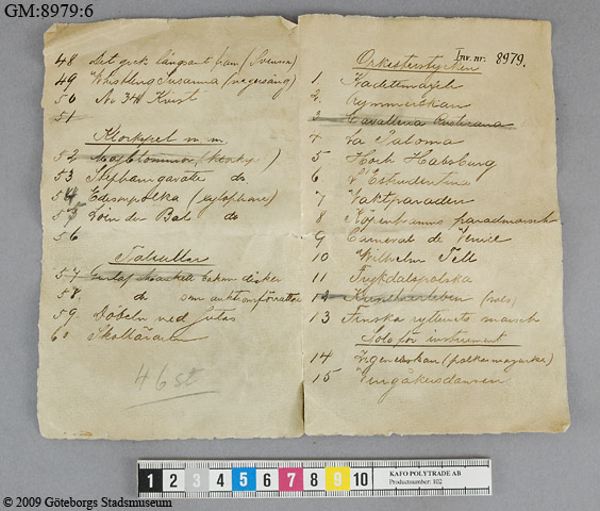 GM:8979:6
48 Det gick långsamt fram (Svensson)
49 Whistling Susanna (negersång)
50 No 344 Kvist
51
Klockspel m m
52 Majblommor (klocksp)
53 Stephaniegavotte do
54 Edisonpolka (xylophone)
55 Loin du Bal do
56
Tablåer
57 Gustaf bakom disken
58. do som auktionsförrättare
59. Döbeln vid Jutas
60
46 st
Orkesterstycken
Inv. nr: 8979.
1. Kadettmarsch
2.
3 Cavalleria Rusticana
4 La Paloma
5 Hoch Habsburg
6 L'Estudiantina
7 Vaktparaden
8 Köpenhamns paradmarsch
9 Carneval de Venice
10 Wilhelm Tell
11 Frykdalspolska
12 (vals)
13 Finska rytteriets marsch
Solo för instrument
14 Zigenerskan (polkamazurka)
15 Vingåkersdansen
1 2 3 4 5 6 7 8 9 10
KAFO POLYTRADE AB
Productnumber: 102
© 2009 Göteborgs Stadsmuseum